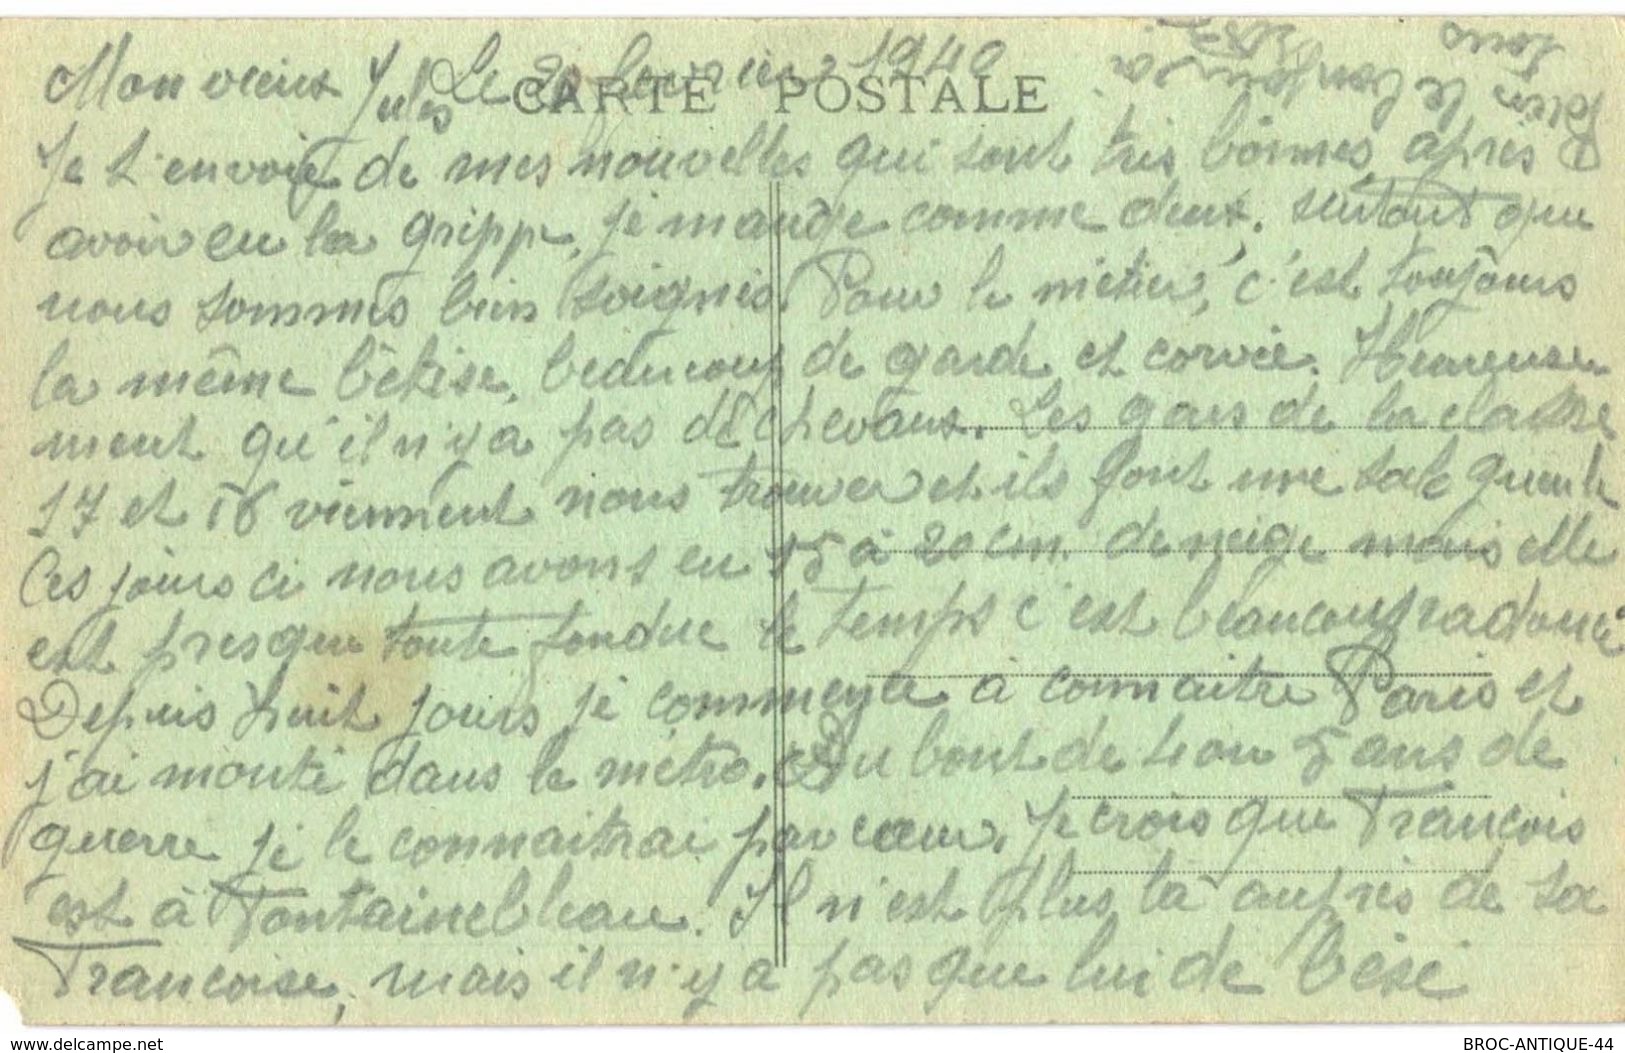 Mon vieux Jules Le 20 fevrier 1940
CARTE POSTALE
Je t'envoie de mes nouvelles qui sont très bonnes, après
avoir eu la grippe, je mange comme deux, surtout que
nous sommes bien soignés. Pour le métier, c'est toujours
la même bêtise, beaucoup de garde et corvée. Heureuse
ment qu'il n'y a pas de chevaux. Les gars de la classe
17 et 16 viennent nous trouver et ils font une sale gueule
Ces jours ci nous avons eu 15 à 20 cm. de neige mais elle
est presque toute fondue le temps c'est beaucoup radouci
Depuis huit jours je commence à connaitre Paris et
j'ai monté dans le métro. Au bout de 4 ou 5 ans de
guerre je le connaitrai par cœur. Je crois que François
est à Fontainebleau. Il n'est plus là auprès de sa
Françoise, mais il n'y a pas que lui de bésé
bien le bonjour à
tous
BROC-ANTIQUE-44
www.delcampe.net